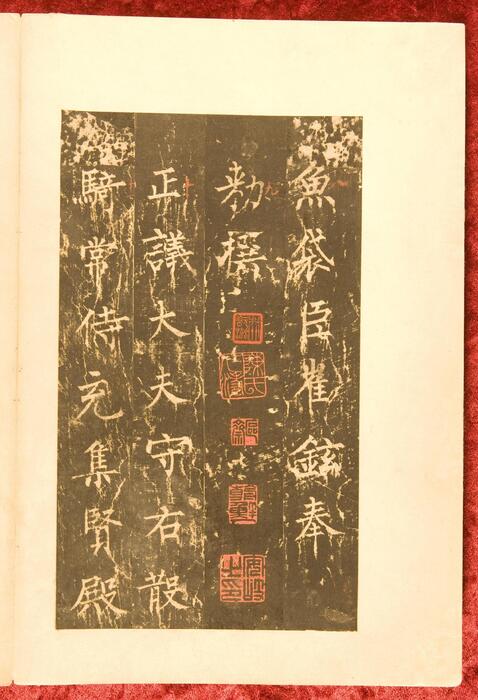 魚袋臣崔鉉奉
勅撰
正議大夫守右散
騎常侍充集賢殿